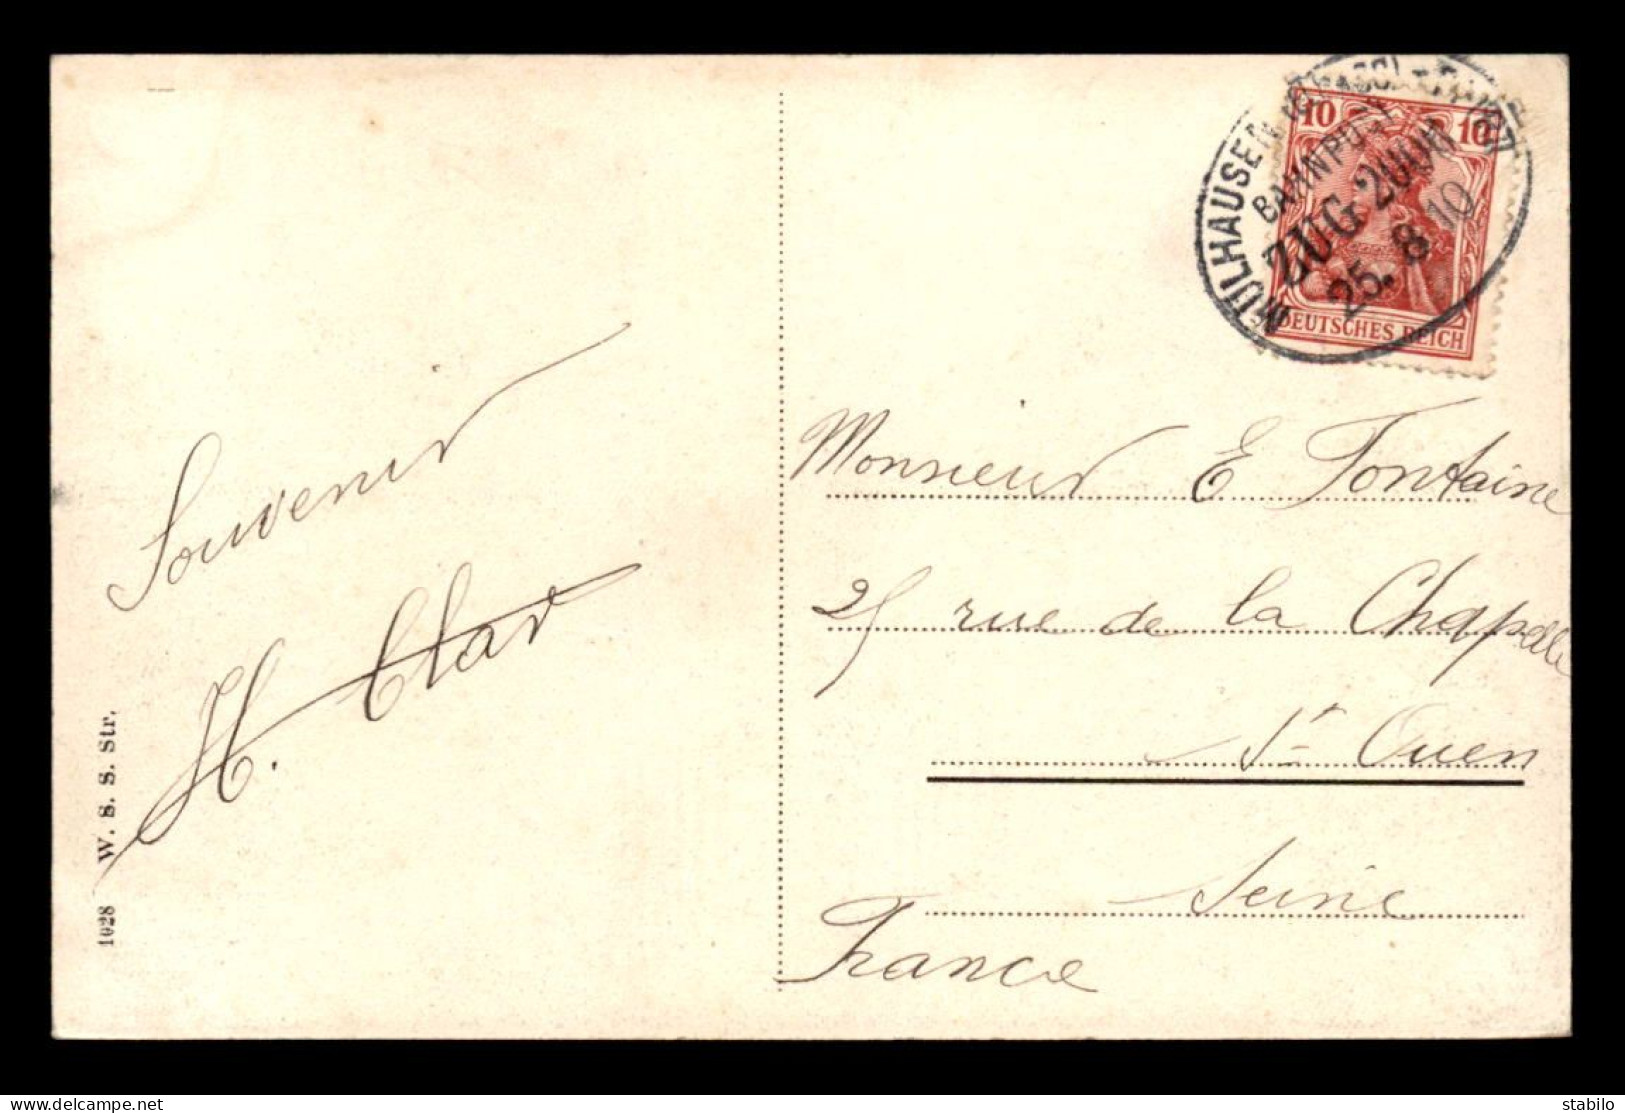 Souvenir
H. Clar
1028 W. S. S. Str.
MÜLHAUSEN
BAHNPOST
ZUG
25. 8 10
10 10
DEUTSCHES REICH
Monsieur E Fontaine
25 rue de la Chapelle
St Ouen
Seine
France
https://www.delcampe.net
stabilo